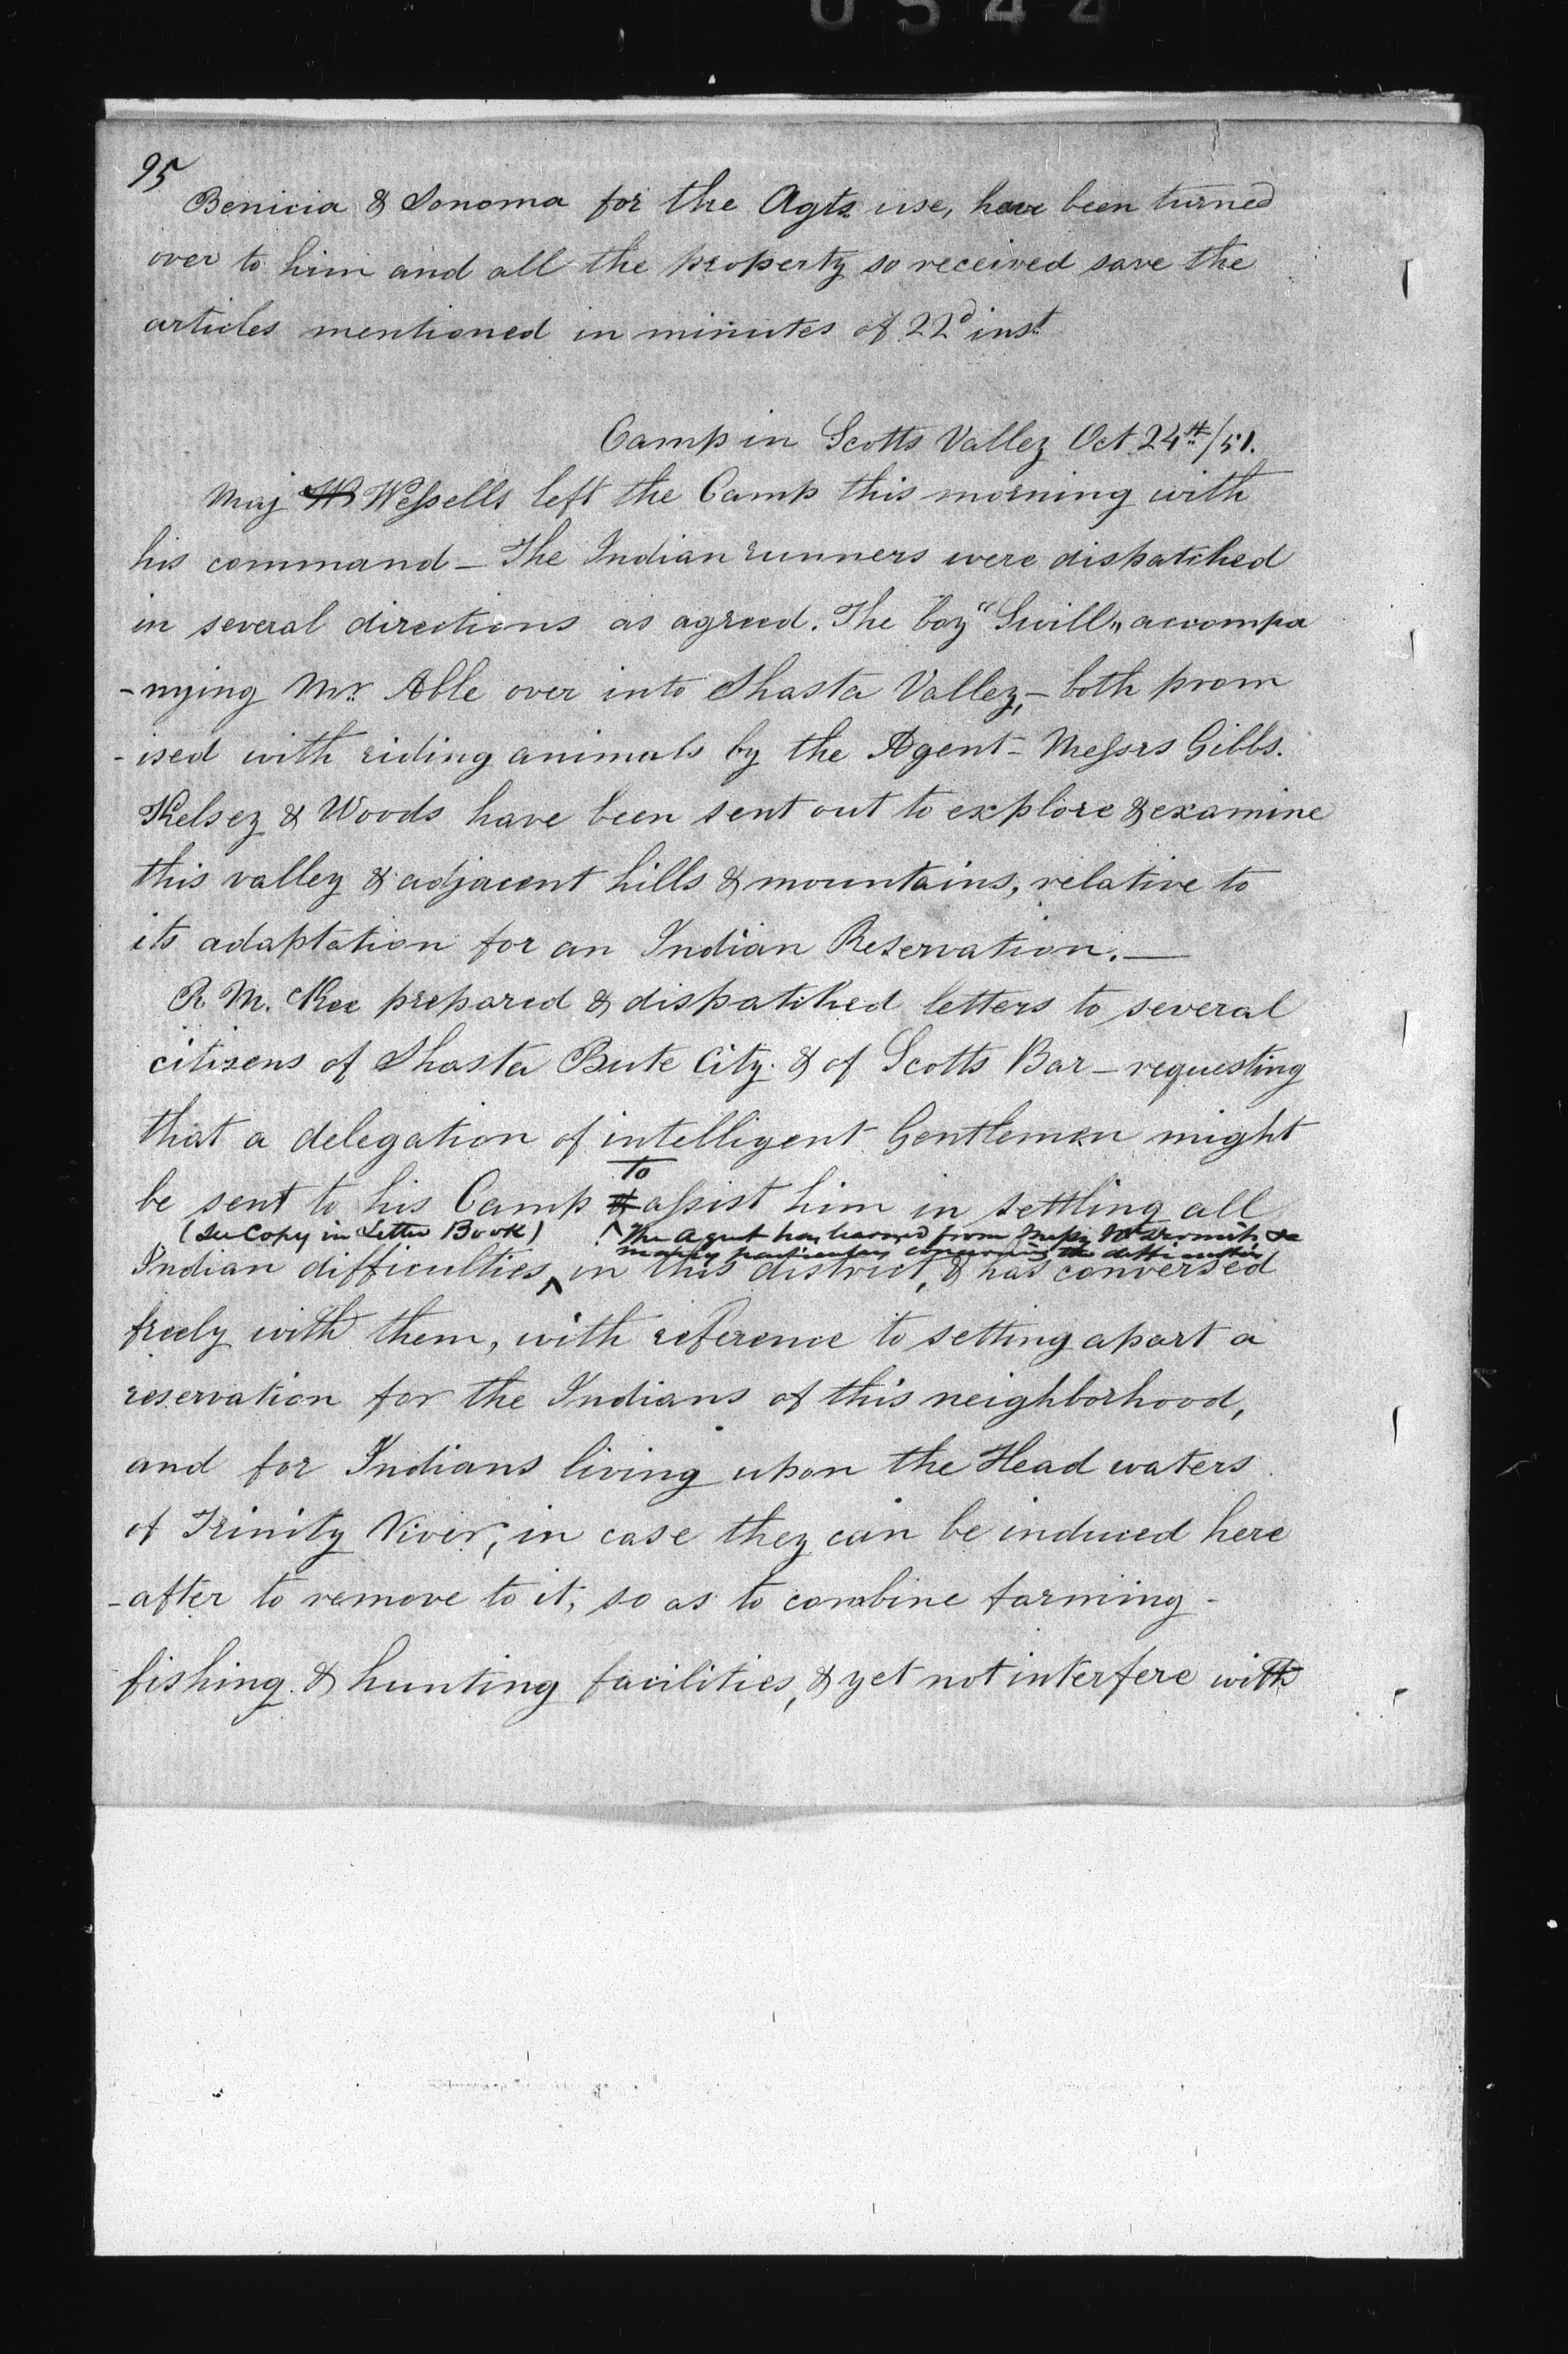 0544
95
Benicia & Sonoma for the Agts use, have been turned
over to him and all the property so received save the
articles mentioned in minutes of 22d inst
Camp in Scotts Valley Oct. 24th/51.
Maj W Wessells left the Camp this morning with
his command – The Indian runners were dispatched
in several directions as agreed. The boy "Swill" accompa
-nying Mr. Able over into Shasta Valley, – both prom
-ised with riding animals by the Agent – Messrs Gibbs.
Kelsey & Woods have been sent out to explore & examine
this valley & adjacent hills & mountains, relative to
its adaptation for an Indian Reservation. —
R. M. cKee prepared & dispatched letters to several
citizens of Shasta Bute City. & of Scotts Bar – requesting
that a delegation of intelligent Gentlemen might
to
be sent to his Camp assist him in settling all
(See Copy in Letter Book) The Agent has learned from Messrs McDermit &
many particulars concerning the difficulties
Indian difficulties in this district, & has conversed
freely with them, with reference to setting apart a
reservation for the Indians of this neighborhood,
and for Indians living upon the Head waters
of Trinity River, in case they can be induced here
-after to remove to it, so as to combine farming -
fishing & hunting facilities, & yet not interfere with